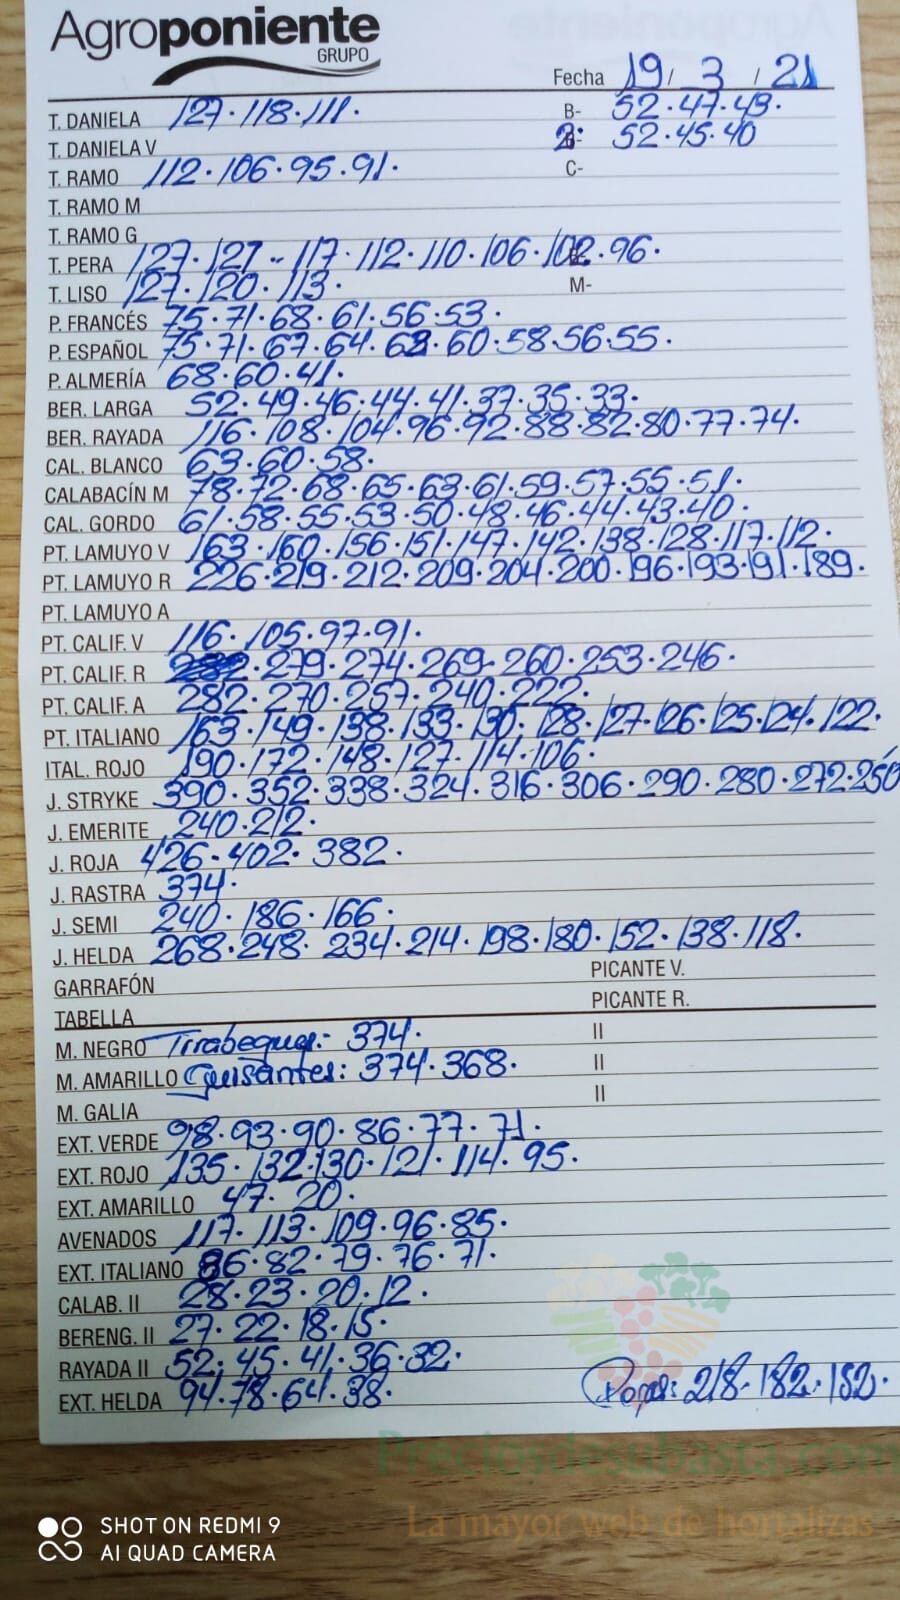 Agroponiente
GRUPO
Fecha 19 / 3 / 21
T. DANIELA 127 · 118 · 111 · B- 52 · 47 · 43 ·
T. DANIELA V 2: 52 · 45 · 40
T. RAMO 112 · 106 · 95 · 91 · C-
T. RAMO M
T. RAMO G
T. PERA 127 · 121 - · 117 · 112 · 110 · 106 · 102 · 96 ·
T. LISO 127 · 120 · 113 · M-
P. FRANCÉS 75 · 71 · 68 · 61 · 56 · 53 ·
P. ESPAÑOL 75 · 71 · 67 · 64 · 62 · 60 · 58 · 56 · 55 ·
P. ALMERÍA 68 · 60 · 41 ·
BER. LARGA 52 · 49 · 46 · 44 · 41 · 37 · 35 · 33 ·
BER. RAYADA 116 · 108 · 104 · 96 · 92 · 88 · 82 · 80 · 77 · 74 ·
CAL. BLANCO 63 · 60 · 58 ·
CALABACÍN M 78 · 72 · 68 · 65 · 63 · 61 · 59 · 57 · 55 · 51 ·
CAL. GORDO 61 · 58 · 55 · 53 · 50 · 48 · 46 · 44 · 43 · 40 ·
PT. LAMUYO V 163 · 160 · 156 · 151 · 147 · 142 · 138 · 128 · 117 · 112 ·
PT. LAMUYO R 226 · 219 · 212 · 209 · 204 · 200 · 196 · 193 · 191 · 189 ·
PT. LAMUYO A
PT. CALIF. V 116 · 105 · 97 · 91 ·
PT. CALIF. R 279 · 274 · 269 · 260 · 253 · 246 ·
PT. CALIF. A 282 · 270 · 257 · 240 · 222 ·
PT. ITALIANO 163 · 149 · 138 · 133 · 130 · 128 · 127 · 126 · 125 · 124 · 122 ·
ITAL. ROJO 190 · 172 · 148 · 127 · 114 · 106 ·
J. STRYKE 390 · 352 · 338 · 324 · 316 · 306 · 290 · 280 · 272 · 250
J. EMERITE 240 · 212 ·
J. ROJA 426 · 402 · 382 ·
J. RASTRA 374 ·
J. SEMI 240 · 186 · 166 ·
J. HELDA 268 · 248 · 234 · 214 · 198 · 180 · 152 · 138 · 118 ·
GARRAFÓN PICANTE V.
TABELLA PICANTE R.
M. NEGRO Tirabeques: 374 · II
M. AMARILLO Guisantes: 374 · 368 · II
M. GALIA II
EXT. VERDE 98 · 93 · 90 · 86 · 77 · 71 ·
EXT. ROJO 135 · 132 · 130 · 121 · 114 · 95 ·
EXT. AMARILLO 47 · 20 ·
AVENADOS 117 · 113 · 109 · 96 · 85 ·
EXT. ITALIANO 86 · 82 · 79 · 76 · 71 ·
CALAB. II 28 · 23 · 20 · 12 ·
BERENG. II 27 · 22 · 18 · 15 ·
RAYADA II 52 · 45 · 41 · 36 · 32 ·
EXT. HELDA 94 · 78 · 64 · 38 · 218 · 182 · 152 ·
Preciosdesubasta.com
La mayor web de hortalizas
SHOT ON REDMI 9
AI QUAD CAMERA